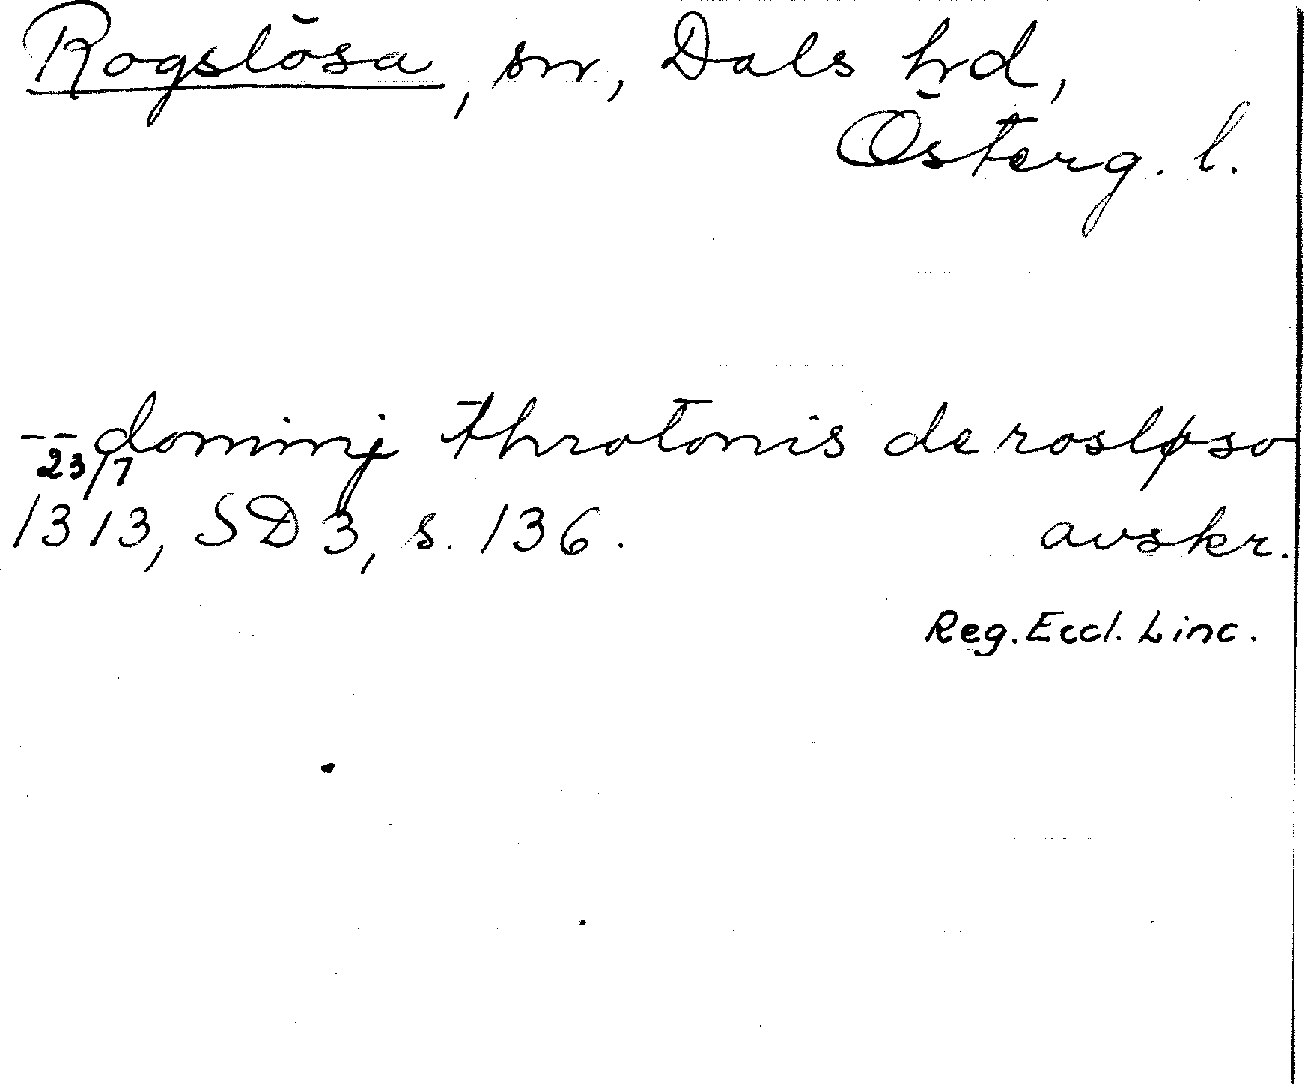 Rogslösa, sn, Dals hd,
Österg. l.
-- dominj throtonis de rosløso
23/7
1313, SD 3, s. 136. avskr.
Reg. Eccl. Linc.